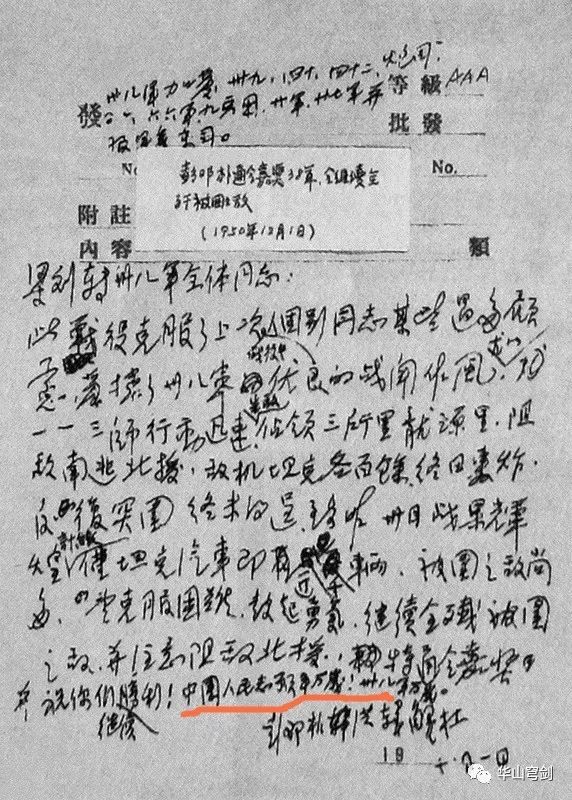 卅八军 卅九、四十、四十二、炮司:
發 等級 AAA
六六军、九兵团、廿军、廿七军并
批發
报军委 东司。
No. No.
彭邓朴通令嘉奖38军,令继续全
歼被围之敌
(1950年12月1日)
附註
内容 類
梁刘转卅八军全体同志:
此战役克服了上次个别同志某些过多顾
虑,发挥了卅八军优良的战斗作风,尤以
一一三师行动迅速,先敌占领三所里龙源里,阻
敌南逃北援。敌机坦克各百余,终日轰炸,
反复突围,终未得逞。至昨卅日战果辉
煌,计仅坦克汽车即近千辆,被围之敌尚
多。望克服困难,鼓起勇气,继续全歼被围
之敌,并注意阻敌北援。特通令嘉奖
并祝你们继续胜利!中国人民志愿军万岁!卅八军万岁。
彭邓朴韩洪解杜
19 十.二.一日
华山穹剑